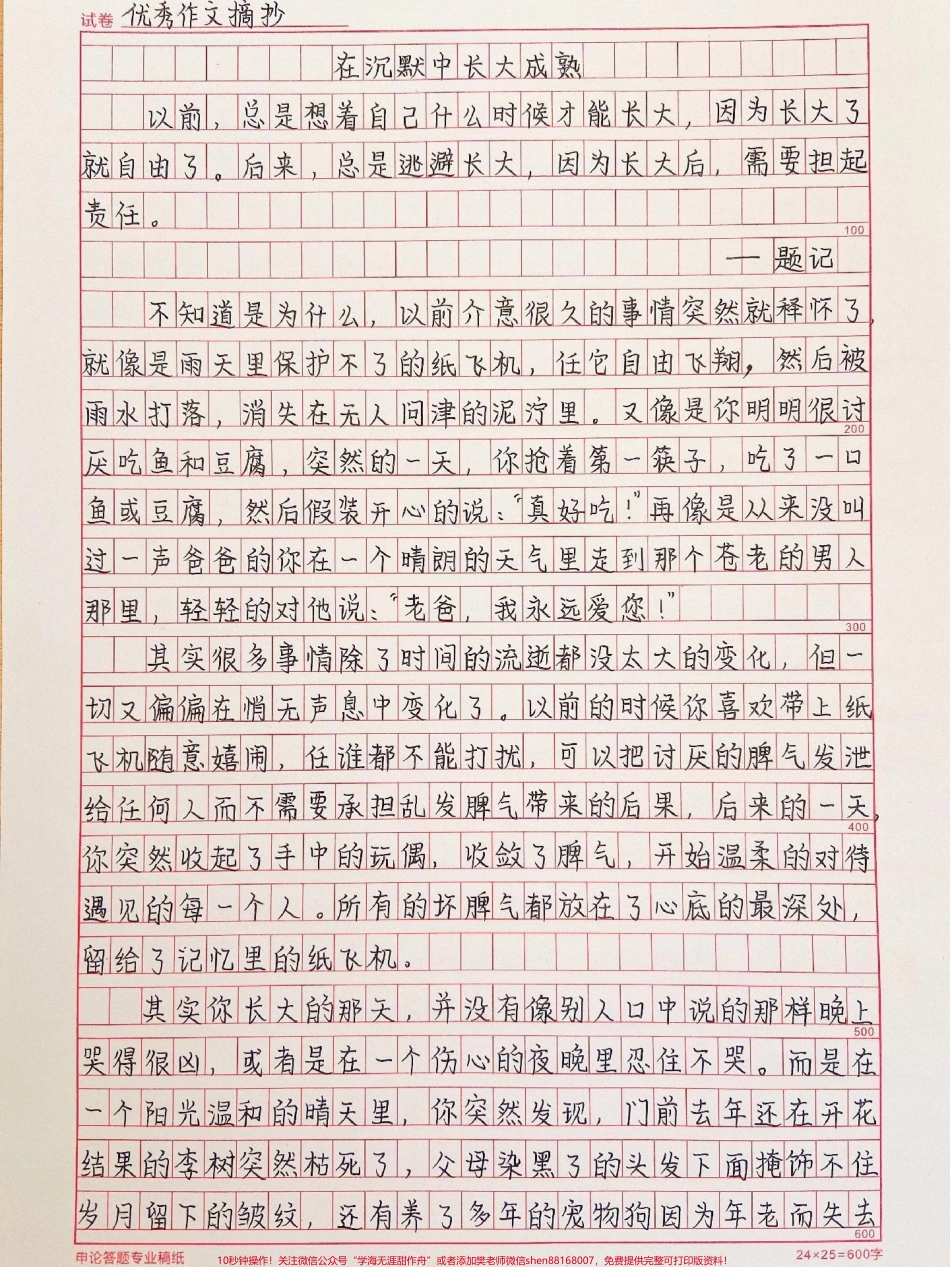 试卷 优秀作文摘抄
在沉默中长大成熟
以前，总是想着自己什么时候才能长大，因为长大了
就自由了。后来，总是逃避长大，因为长大后，需要担起
责任。
100
一题记
不知道是为什么，以前介意很久的事情突然就释怀了，
就像是雨天里保护不了的纸飞机，任它自由飞翔，然后被
雨水打落，消失在无人问津的泥泞里。又像是你明明很讨
200
厌吃鱼和豆腐，突然的一天，你抢着第一筷子，吃了一口
鱼或豆腐，然后假装开心的说：“真好吃！”再像是从来没叫
过一声爸爸的你在一个晴朗的天气里走到那个苍老的男人
那里，轻轻的对他说：“老爸，我永远爱您！”
300
其实很多事情除了时间的流逝都没太大的变化，但一
切又偏偏在悄无声息中变化了。以前的时候你喜欢带上纸
飞机随意嬉闹，任谁都不能打扰，可以把讨厌的脾气发泄
给任何人而不需要承担乱发脾气带来的后果，后来的一天，
400
你突然收起了手中的玩偶，收敛了脾气，开始温柔的对待
遇见的每一个人。所有的坏脾气都放在了心底的最深处，
留给了记忆里的纸飞机。
其实你长大的那天，并没有像别人口中说的那样晚上
500
哭得很凶，或者是在一个伤心的夜晚里忍住不哭。而是在
一个阳光温和的晴天里，你突然发现，门前去年还在开花
结果的李树突然枯死了，父母染黑了的头发下面掩饰不住
岁月留下的皱纹，还有养了多年的宠物狗因为年老而失去
600
申论答题专业稿纸
10秒钟操作！关注微信公众号“学海无涯甜作舟”或者添加樊老师微信shen88168007，免费提供完整可打印版资料！
24×25=600字